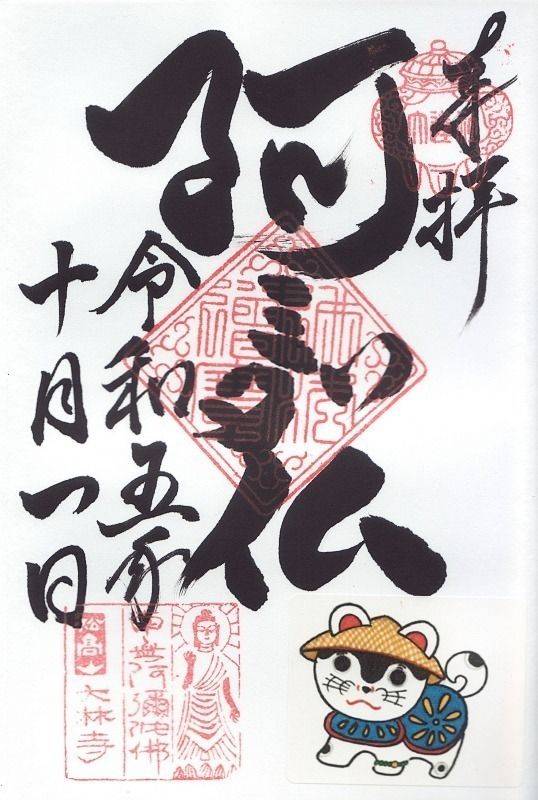 奉拝
阿弥陀仏
令和五年
十月一日
南無阿彌陀佛
松高山
大林寺